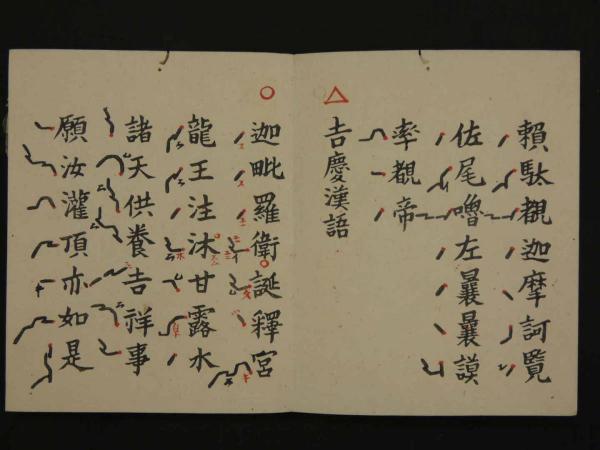 賴馱襯迦摩訶覽
佐尾嚕左曩曩謨
率覩帝
吉慶漢語
迦毗羅衛誕釋宮
龍王注沐甘露水
諸天供養吉祥事
願汝灌頂亦如是